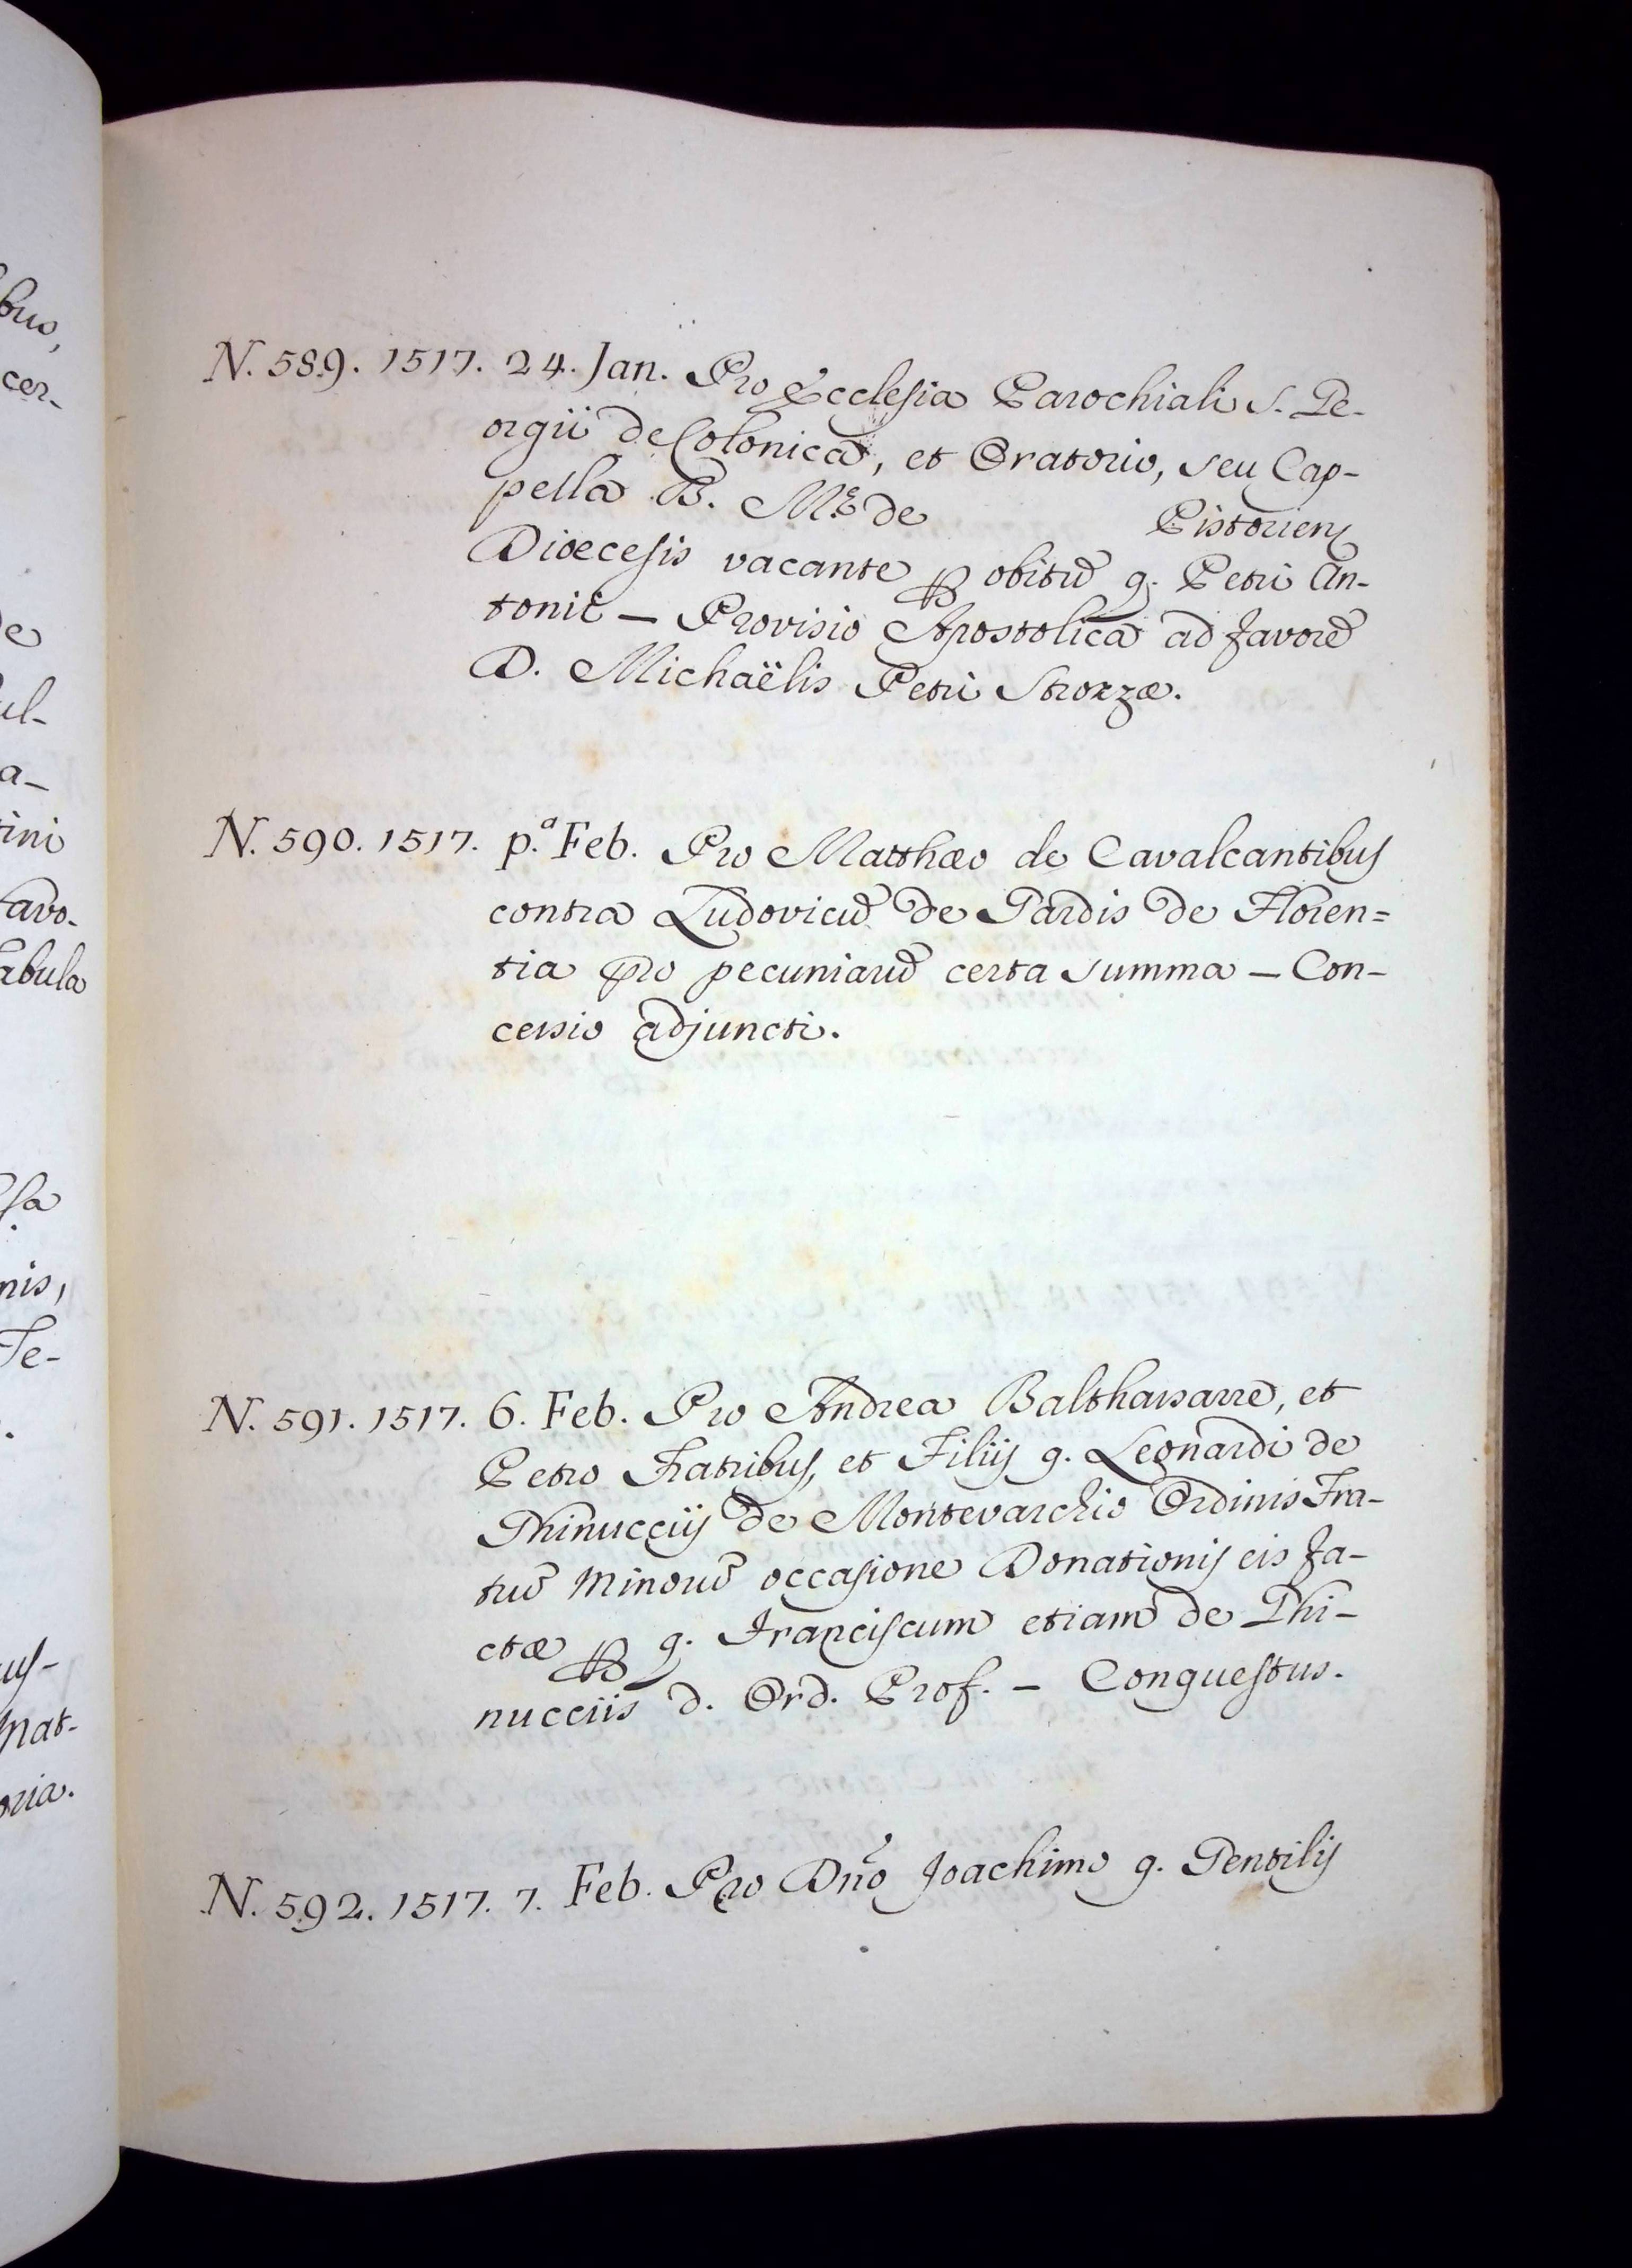 bus,
cer-
de
ul-
a-
tini
favo-
abula
sa
nis,
Te-
us-
mat-
oria.
N. 589. 1517. 24. Jan. Pro Ecclesia Parochiali S. Ge-
orgii de Colonica, et Oratorio, seu Cap-
pella B. M.ę de Pistorien
Dioecesis vacante p obitũ q. Petri An-
tonii — Provisio Apostolica ad favorẽ
D. Michaëlis Petri Strozzæ.
N. 590. 1517. p.ª Feb. Pro Matthæo de Cavalcantibus
contra Ludovicũ de Gardis de Floren=
tia pro pecuniarũ certa summa — Con-
cessio adjuncti.
N. 591. 1517. 6. Feb. Pro Andrea Balthassarre, et
Petro Fratribus, et Filiis q. Leonardi de
Ghinucciis de Montevarchio Ordinis Fra-
trũ Minorũ occasione Donationis eis fa-
ctæ p q. Franciscum etiam de Ghi-
nucciis d. Ord. Prof. — Conquestus.
N. 592. 1517. 7. Feb. Pro Dño Joachimo q. Gentilis